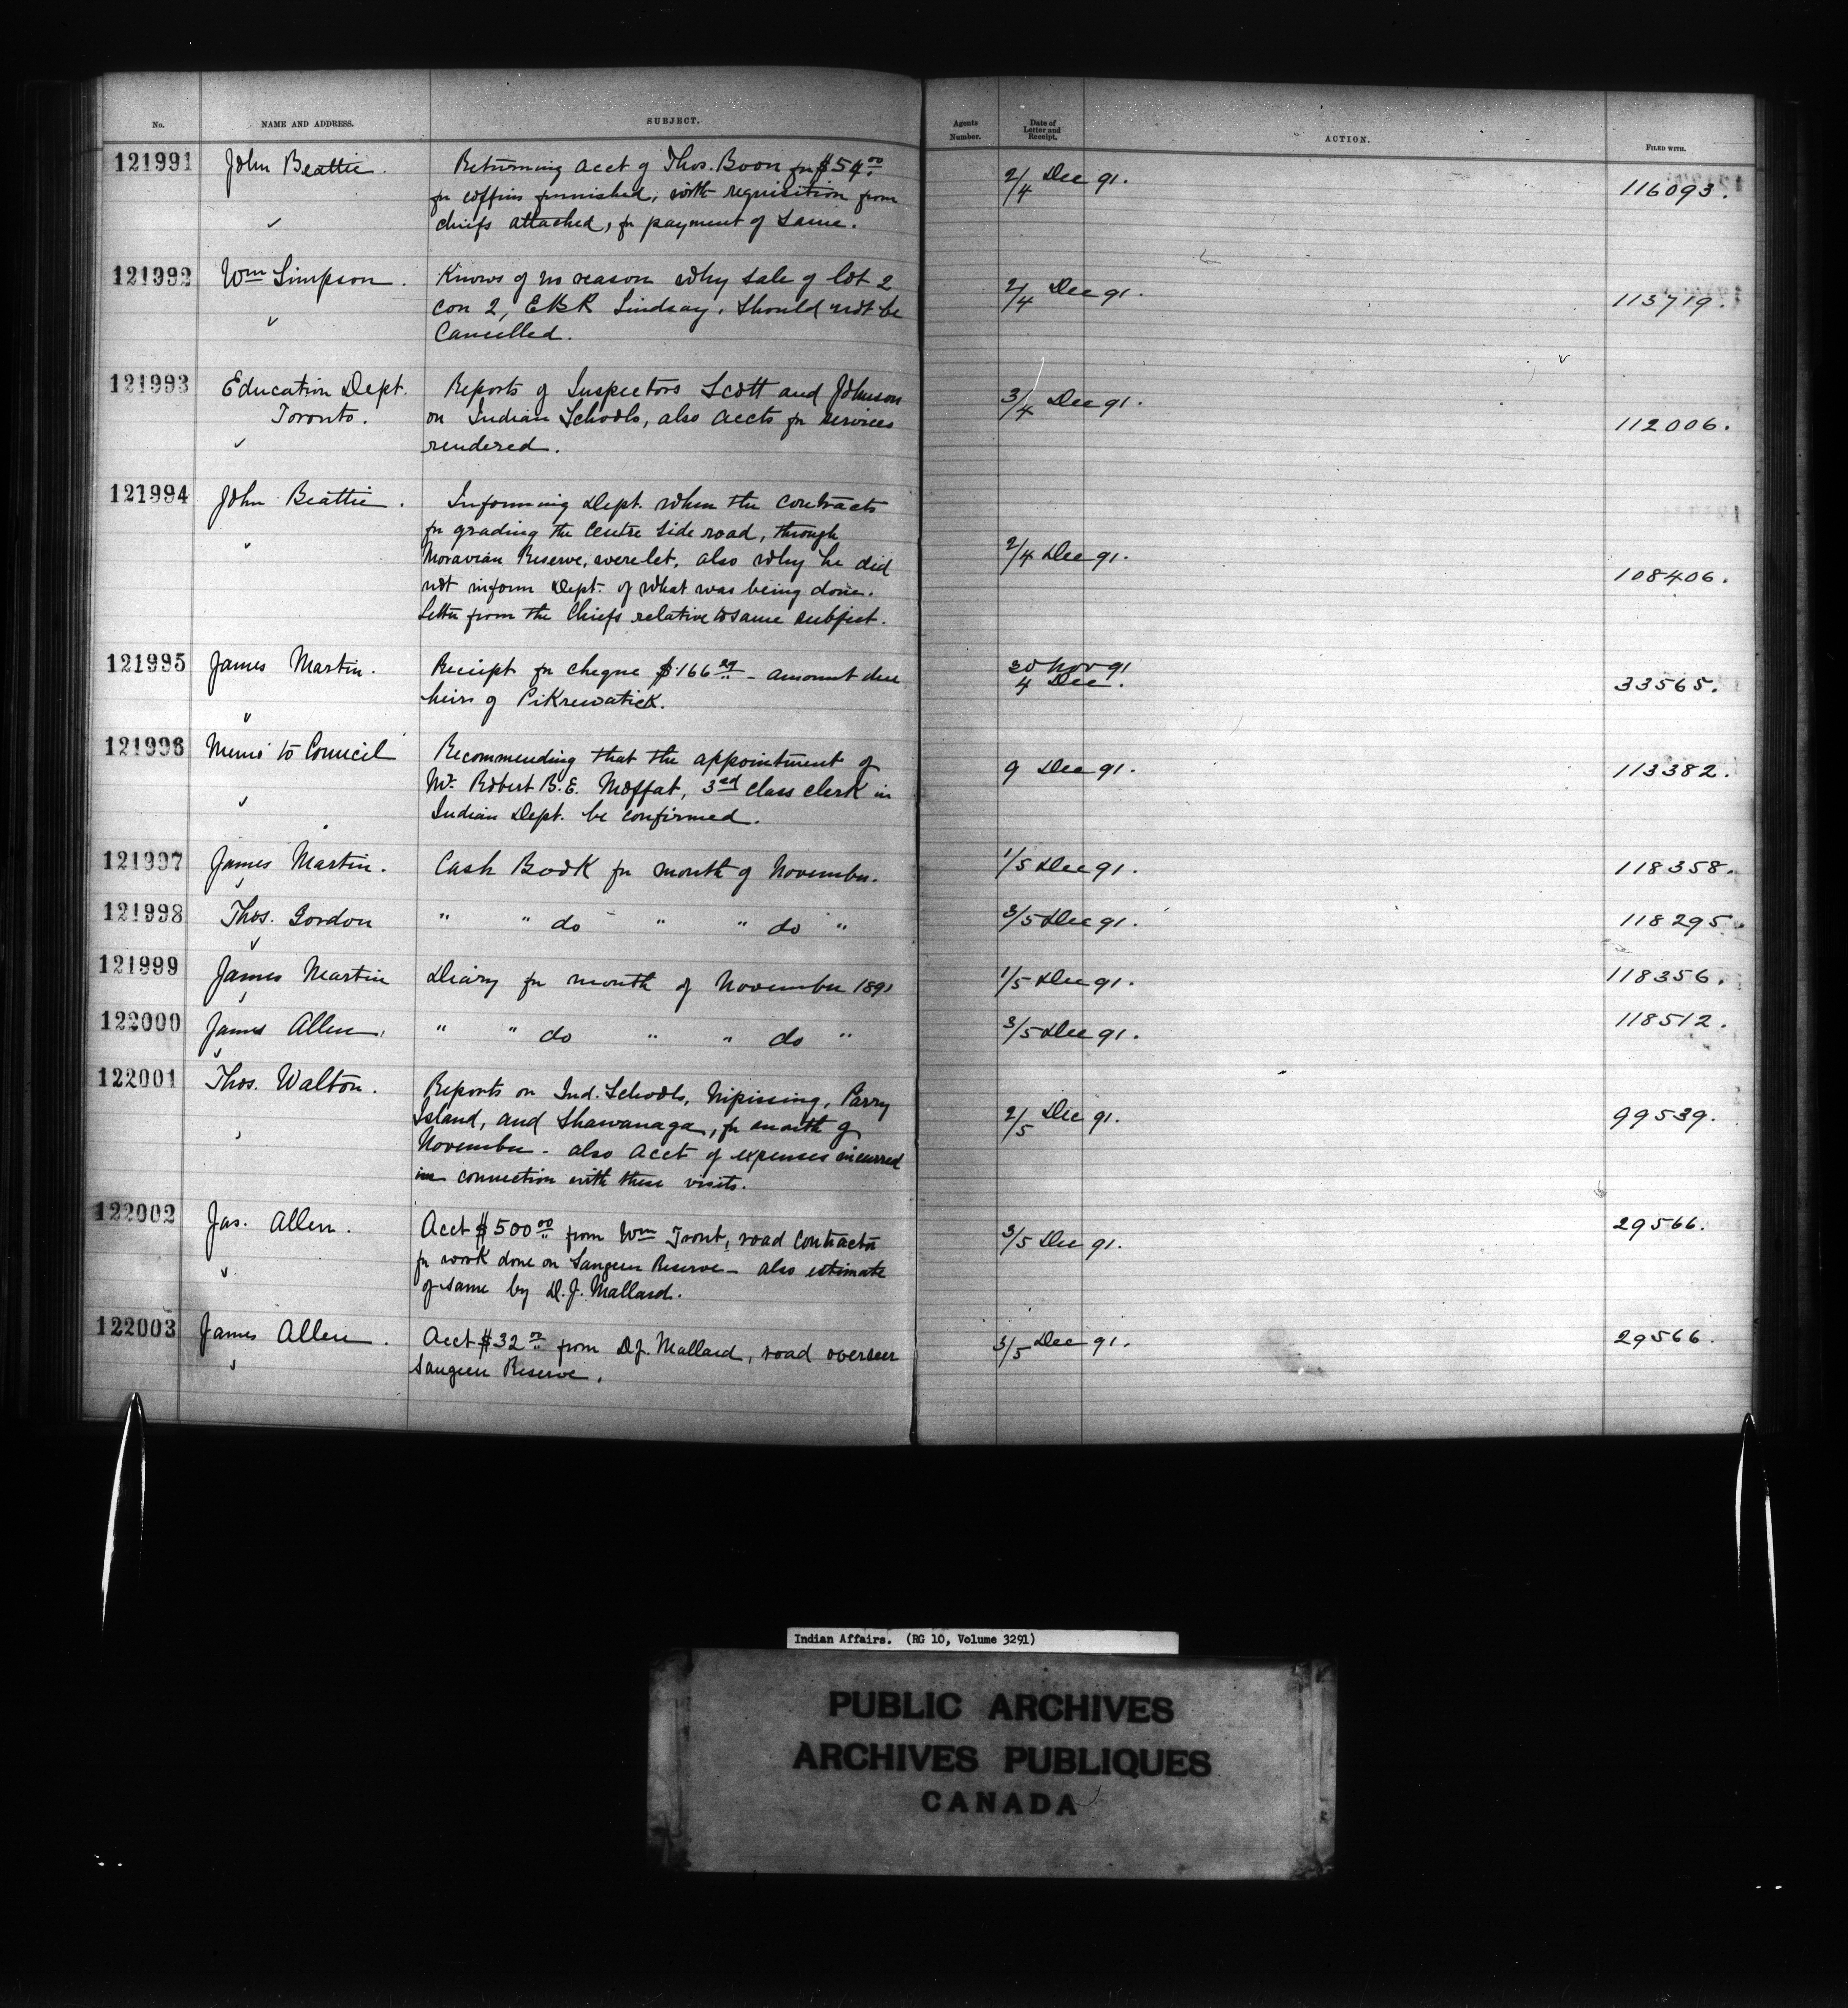 No. NAME AND ADDRESS. SUBJECT. Agents Number. Date of Letter and Receipt. ACTION. FILED WITH.
121991 John Beattie. Returning acct of Thos. Boon for $54.00 2/4 Dec 91. 116093.
for coffins furnished, with requisition from
chiefs attached, for payment of same.
121992 Wm Simpson. Knows of no reason why sale of lot 2 2/4 Dec 91. 113719.
con 2, EBR Lindsay, should not be
Cancelled.
121993 Education Dept. Reports of Inspectors Scott and Johnson 3/4 Dec 91. 112006.
Toronto. on Indian Schools, also accts for services
rendered.
121994 John Beattie. Informing Dept. when the contracts 2/4 Dec 91. 108406.
for grading the centre side road, through
Moravian Reserve, were let, also why he did
not inform Dept. of what was being done.
Letter from the Chiefs relative to same subject.
121995 James Martin. Receipt for cheque $166.29 - amount due 30 Nov 91 33565.
heirs of Pikrewatick. 4 Dec.
121996 Memo to Council Recommending that the appointment of 9 Dec 91. 113382.
Mr. Robert B. E. Moffat, 3rd class clerk in
Indian Dept. be confirmed.
121997 James Martin. Cash Book for month of November. 1/5 Dec 91. 118358.
121998 Thos. Gordon " " do " " do " 3/5 Dec 91. 118295.
121999 James Martin Diary for month of November 1891 1/5 Dec 91. 118356.
122000 James Allen. " " do " " do " 3/5 Dec 91. 118512.
122001 Thos. Walton. Reports on Ind. Schools, Nipissing, Parry 2/5 Dec 91. 99539.
Island, and Shawanaga, for month of
November - also acct of expenses incurred
in connection with these visits.
122002 Jas. Allen. Acct $500.00 from Wm Trout, road contractor 3/5 Dec 91. 29566.
for work done on Saugeen Reserve - also estimate
of same by D. J. Mallard.
122003 James Allen. Acct $32.00 from D J. Mallard, road overseer 3/5 Dec 91. 29566.
Saugeen Reserve.
Indian Affairs. (RG 10, Volume 3291)
PUBLIC ARCHIVES
ARCHIVES PUBLIQUES
CANADA